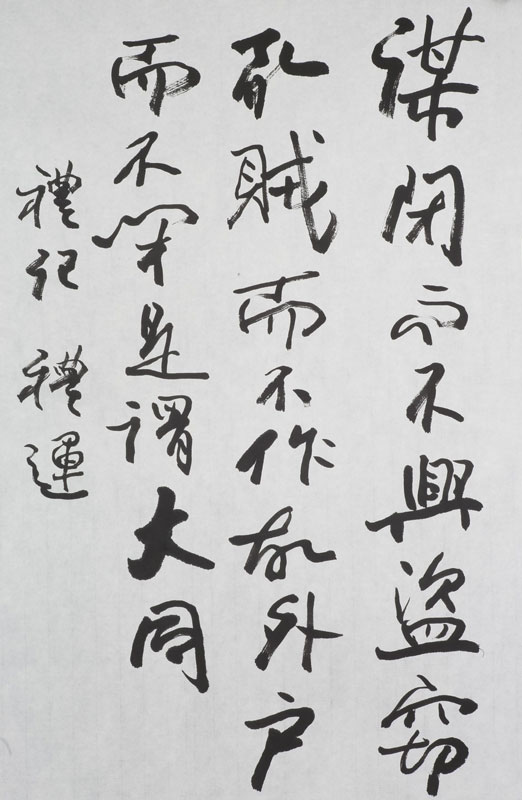 謀閉而不興盜窃
亂賊而不作故外户
而不閉是謂大同
禮記 禮運